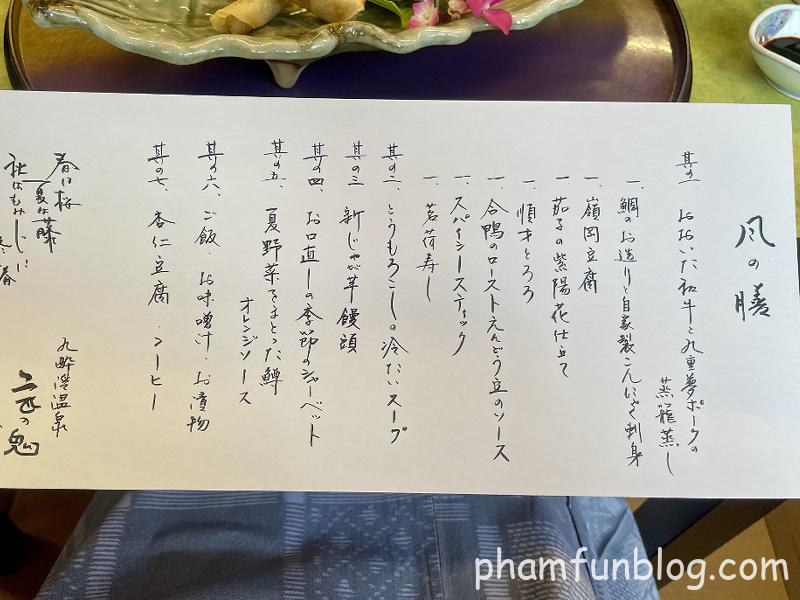 風の膳
其の一 おおいた和牛と九重夢ポークの
蒸籠蒸し
一、鯛のお造りと自家製こんにゃく刺身
一、嶺岡豆腐
一 茄子の紫陽花仕立て
一、順才とろろ
一、合鴨のローストえんどう豆のソース
一、スパイシースティック
一、茗荷寿し
其の二、とうもろこしの冷たいスープ
其の三 新じゃが芋饅頭
其の四、お口直しの季節のシャーベット
其の五、夏野菜をまとった鱒
オレンジソース
其の六、ご飯、お味噌汁、お漬物
其の七、杏仁豆腐、コーヒー
春は桜
夏は藤
秋はもみじに
冬 春
九酔渓温泉
二匹の鬼
phamfunblog.com